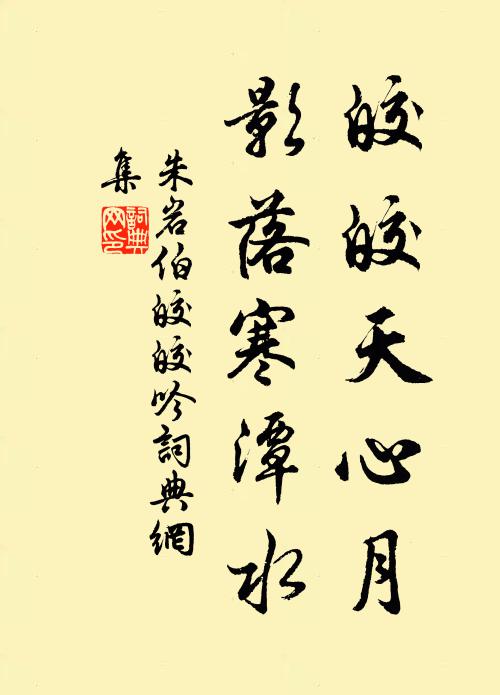 皎皎天心月
影落寒潭水
朱岩伯皎皎吟詞典網
集
詞典
网印